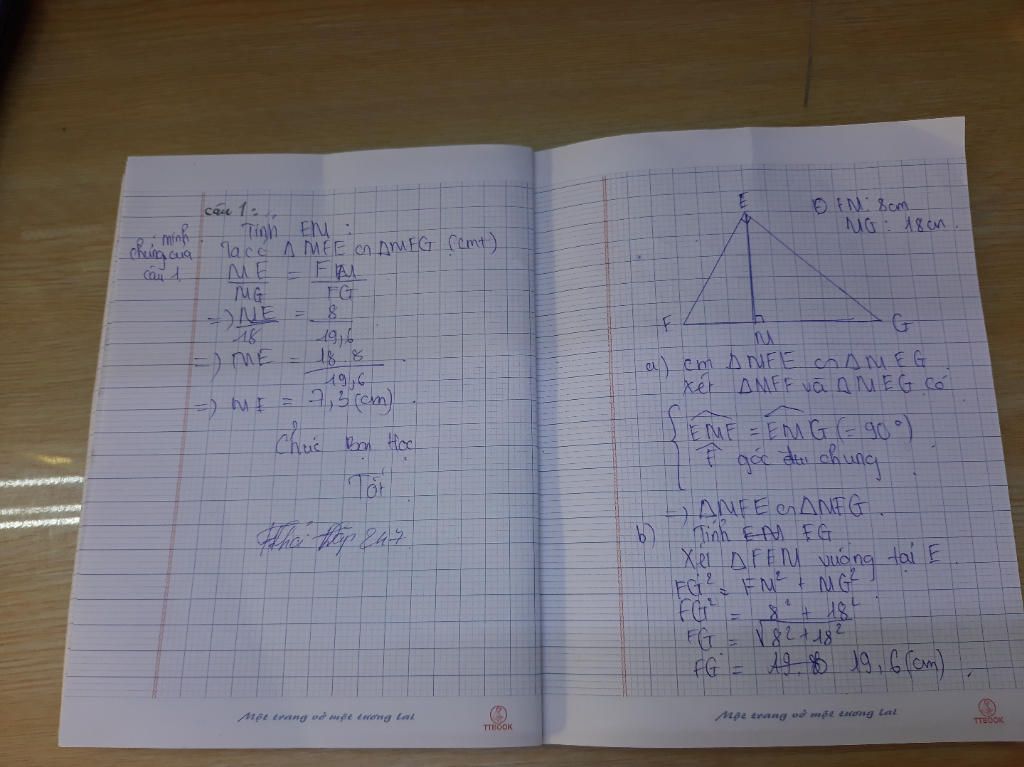 câu 1:
Tính EM:
minh
chứng của
câu 1
Ta có Δ MFE ∽ ΔMFG (cmt)
ME/MG = FM/FG
=> ME/18 = 8/19,6
=> ME = 18.8/19,6
=> ME = 7,3 (cm)
Chúc Bạn Học
Tốt
Một trang vở một tương lai
TTBOOK
E
FM: 8cm
MG: 18cm
F
M
G
a) cm ΔMFE ∽ ΔMEG
Xét ΔMFE và ΔMEG có
EMF = EMG (= 90°)
F góc chung
=> ΔMFE ∽ ΔMFG
b) Tính EM FG
Xét ΔFEM vuông tại E
FG² = FM² + MG²
FG² = 8² + 18²
FG = √8² + 18²
FG = 19,6 (cm)
Một trang vở một tương lai
TTBOOK